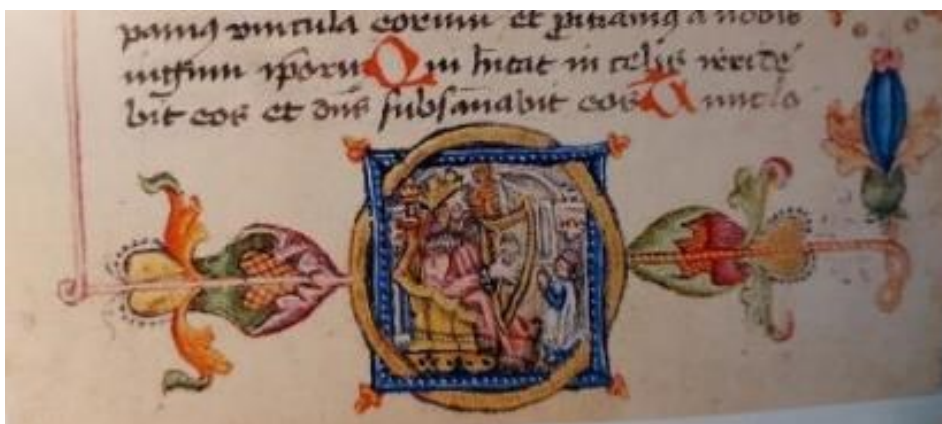 pamꝰ vincula eorum et ꝓiciamꝰ a nobis
iugum ip̄oru Qui h̄itat in celis irride
bit eos et dn̄s subsānabit eos Tunc lo